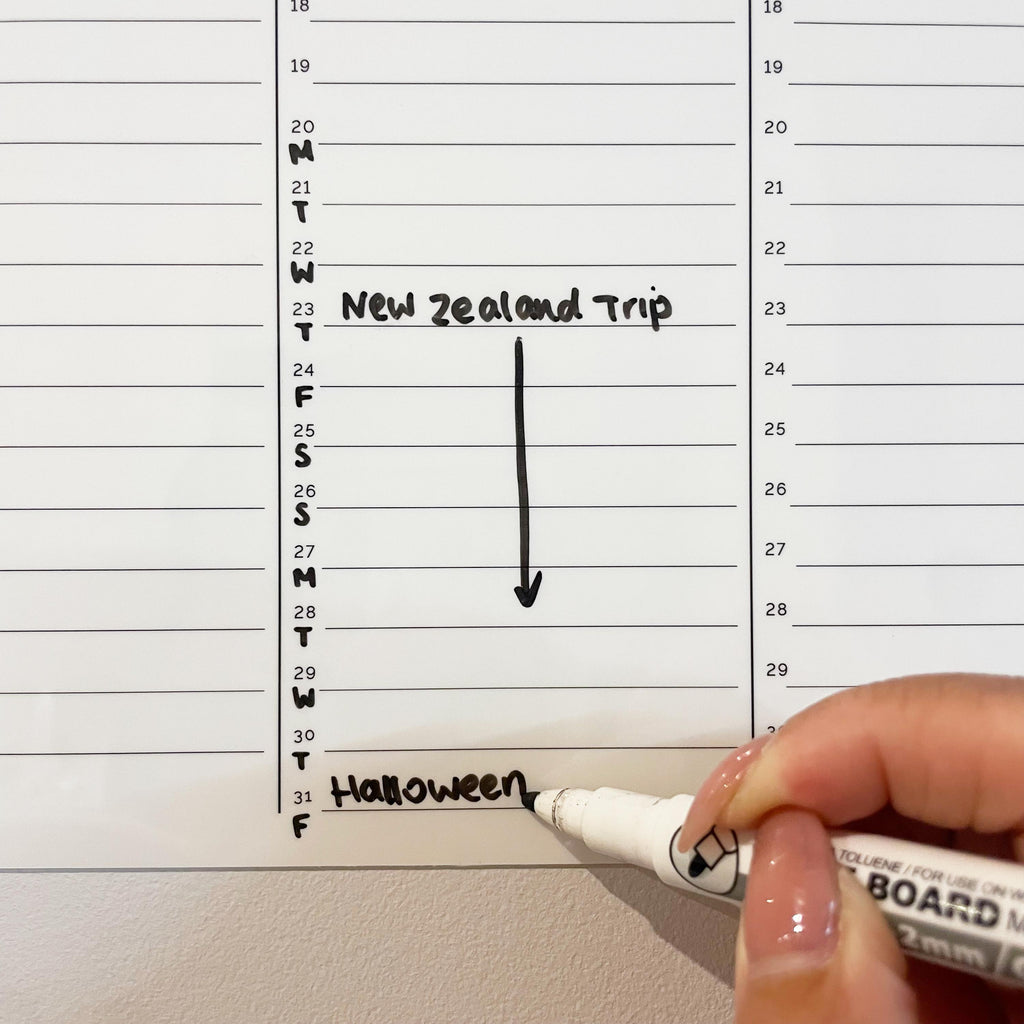 18
19
20
M
21
T
22
W
23
New Zealand Trip
T
24
F
25
S
26
S
27
M
28
T
29
W
30
T
31
Halloween
F
18
19
20
21
22
23
24
25
26
27
28
29
TOLUENE / FOR USE ON
BOARD
2mm